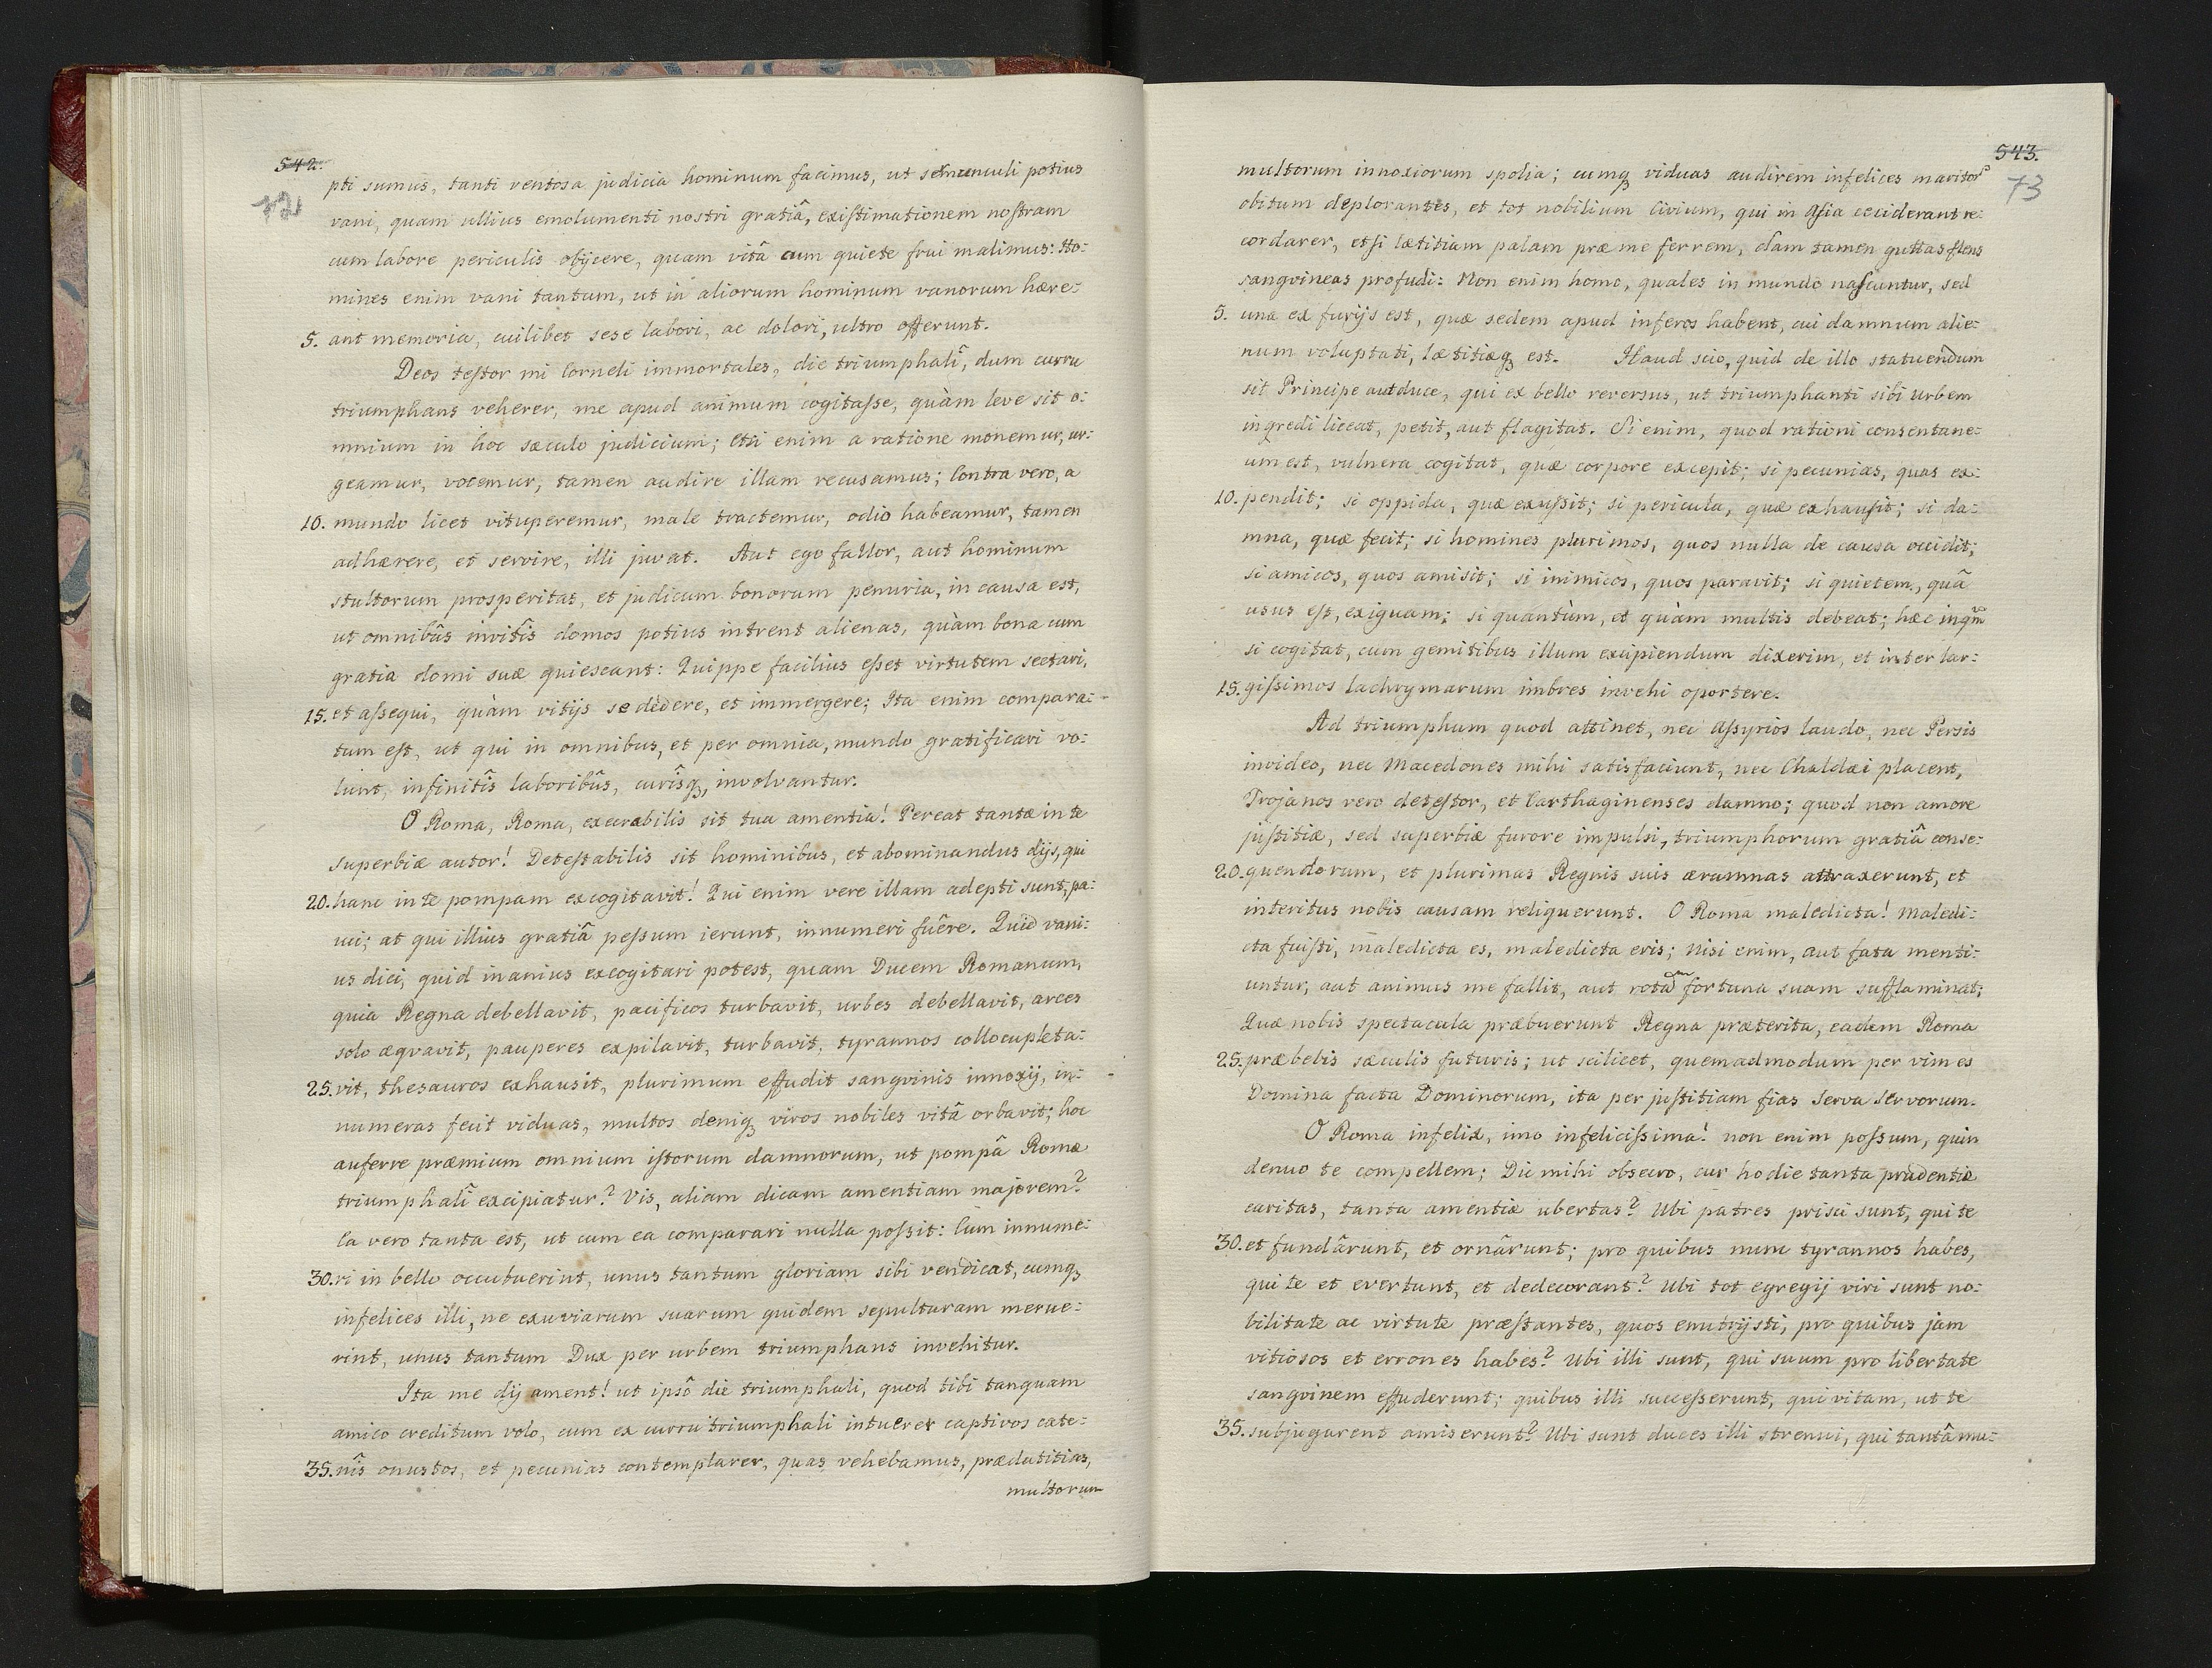 542.
72
pti sumus, tanti ventosa judicia hominum facimus, ut semunculi potius
vani, quam ullius emolumenti nostri gratiâ, existimationem nostram
cum labore periculis objicere, quam vitâ cum quiete frui malimus: Ho:
mines enim vani tantum, ut in aliorum hominum vanorum hære:
5. ant memoria, cuilibet sese labori, ac dolori, ultro offerunt.
Deos testor mi Corneli immortales, die triumphalî, dum curru
triumphans veherer, me apud animum cogitasse, quàm leve sit o:
mnium in hoc sæculo judicium; Etsi enim a ratione monemur, ur:
geamur, vocemur, tamen audire illam recusamus; Contra vero, a
10. mundo licet vituperemur, male tractemur, odio habeamur, tamen
adhærere, et servire, illi juvat. Aut ego fallor, aut hominum
stultorum prosperitas, et judicum bonorum penuria, in causa est,
ut omnibûs invitîs domos potius intrent alienas, quàm bona cum
gratia domi suæ quiescant: Quippe facilius esset virtutem sectari,
15. et assequi, quàm vitijs se dedere, et immergere; Ita enim compara:
tum est, ut qui in omnibus, et per omnia, mundo gratificari vo:
lunt, infinitîs laboribûs, curîsq, involvantur.
O Roma, Roma, execrabilis sit tua amentia! Pereat tantæ in te
superbiæ autor! Detestabilis sit hominibus, et abominandus dijs, qui
20. hanc in te pompam excogitavit! Qui enim vere illam adepti sunt, pa:
uci; at qui illius gratiâ pessum ierunt, innumeri fuêre. Quid vani:
us dici, quid inanius excogitari potest, quam Ducem Romanum,
quia Regna debellavit, pacificos turbavit, urbes debellavit, arces
solo æqvavit, pauperes expilavit, turbavit, tyrannos collocupleta:
25. vit, thesauros exhausit, plurimum effudit sangvinis innoxij, in:
numeras fecit viduas, multos deniq viros nobiles vitâ orbavit; hoc
auferre præmium omnium istorum damnorum, ut pompâ Romæ
triumphalî excipiatur? Vis, aliam dicam amentiam majorem?
Ea vero tanta est, ut cum ea comparari nulla possit: Cum innume:
30. ri in bello occubuerint, unus tantum gloriam sibi vendicat, cumq
infelices illi, ne exuviarum suarum quidem sepulturam merue:
rint, unus tantum Dux per urbem triumphans invehitur.
Ita me dij ament! ut ipsô die triumphali, quod tibi tanquam
amico creditum volo, cum ex curru triumphali intuerer captivos cate:
35. nîs onustos, et pecunias contemplarer, quas vehebamus, prædatitias,
multorum
543.
73
multorum innoxiorum spolia; cumq viduas audirem infelices maritor
obitum deplorantes, et tot nobilium Civium, qui in Asia ceciderant re:
cordarer, etsi lætitiam palam præ me ferrem, clam tamen guttas flens
sangvineas profudi: Non enim homo, quales in mundo nascuntur, sed
5. una ex furijs est, quæ sedem apud inferos habent, cui damnum alie:
num voluptati, lætitiæq est. Haud scio, quid de illo statuendum
sit Principe aut duce, qui ex bello reversus, ut triumphanti sibi urbem
ingredi liceat, petit, aut flagitat. Si enim, quod rationi consentane:
um est, vulnera cogitat, quæ corpore excepit; si pecunias, quas ex:
10. pendit; si oppida, quæ exussit; si pericula, quæ exhausit; si da:
mna, quæ fecit; si homines plurimos, quos nulla de causa occidit;
si amicos, quos amisit; si inimicos, quos paravit; si quietem, quâ
usus est, exiguam; si quantùm, et quàm multis debeat; hæc inqm
si cogitat, cum gemitibus illum excipiendum dixerim, et inter lar:
15. gissimos lachrymarum imbres invehi oportere.
Ad triumphum quod attinet, nec Assyrios laudo, nec Persis
invideo, nec Macedones mihi satisfaciunt, nec Chaldæi placent,
Trojanos vero detestor, et Carthaginenses damno; quod non amore
justitiæ, sed superbiæ furore impulsi, triumphorum gratiâ conse:
20. quendorum, et plurimas Regnis suis ærumnas attraxerunt, et
interitus nobis causam reliquerunt. O Roma maledicta! Maledi:
cta fuisti, maledicta es, maledicta eris; Nisi enim, aut fata menti:
untur, aut animus me fallit, aut rotam fortuna suam sufflaminat;
Quæ nobis spectacula præbuerunt Regna præterita, eadem Roma
25. præbebis sæculis futuris; ut scilicet, quemadmodum per vim es
Domina facta Dominorum, ita per justitiam fias Serva Servorum.
O Roma infelix, imo infelicissima! non enim possum, quin
denuo te compellem; Dic mihi obsecro, cur hodie tanta prudentiæ
caritas, tanta amentiæ ubertas? Ubi patres prisci sunt, qui te
30. et fundârunt, et ornârunt; pro quibus nunc tyrannos habes,
qui te et evertunt, et dedecorant? Ubi tot egregij viri sunt no:
bilitate ac virtute præstantes, quos enutrijsti, pro quibus jam
vitiosos et errones habes? Ubi illi sunt, qui suum pro libertate
sangvinem effuderunt; quibus illi successerunt, qui vitam, ut te
35. subjugarent amiserunt? Ubi sunt duces illi strenui, qui tantâ mu: